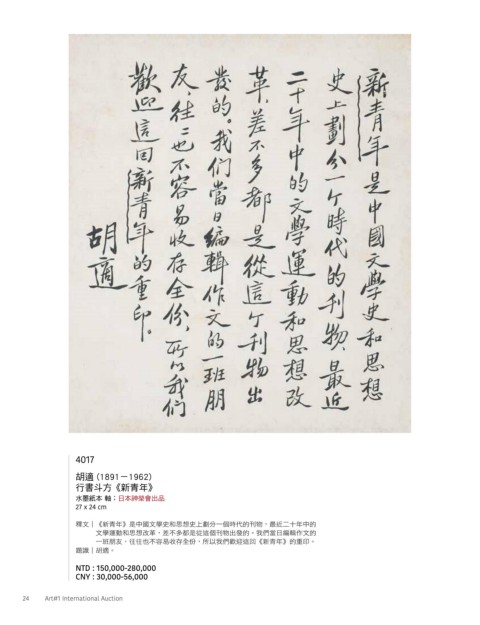 新青年是中國文學史和思想
史上劃分一个時代的刊物，最近
二十年中的文學運動和思想改
革，差不多都是從這个刊物出
發的。我们當日編輯作文的一班朋
友，往二也不容易收存全份，所以我们
歡迎這回新青年的重印。
胡適
4017
胡適 (1891－1962)
行書斗方《新青年》
水墨紙本 軸；日本神榮會出品
27 x 24 cm
釋文｜《新青年》是中國文學史和思想史上劃分一個時代的刊物，最近二十年中的
文學運動和思想改革，差不多都是從這個刊物出發的。我們當日編輯作文的
一班朋友，往往也不容易收存全份，所以我們歡迎這回《新青年》的重印。
題識｜胡適。
NTD : 150,000-280,000
CNY : 30,000-56,000
24 Art#1 International Auction